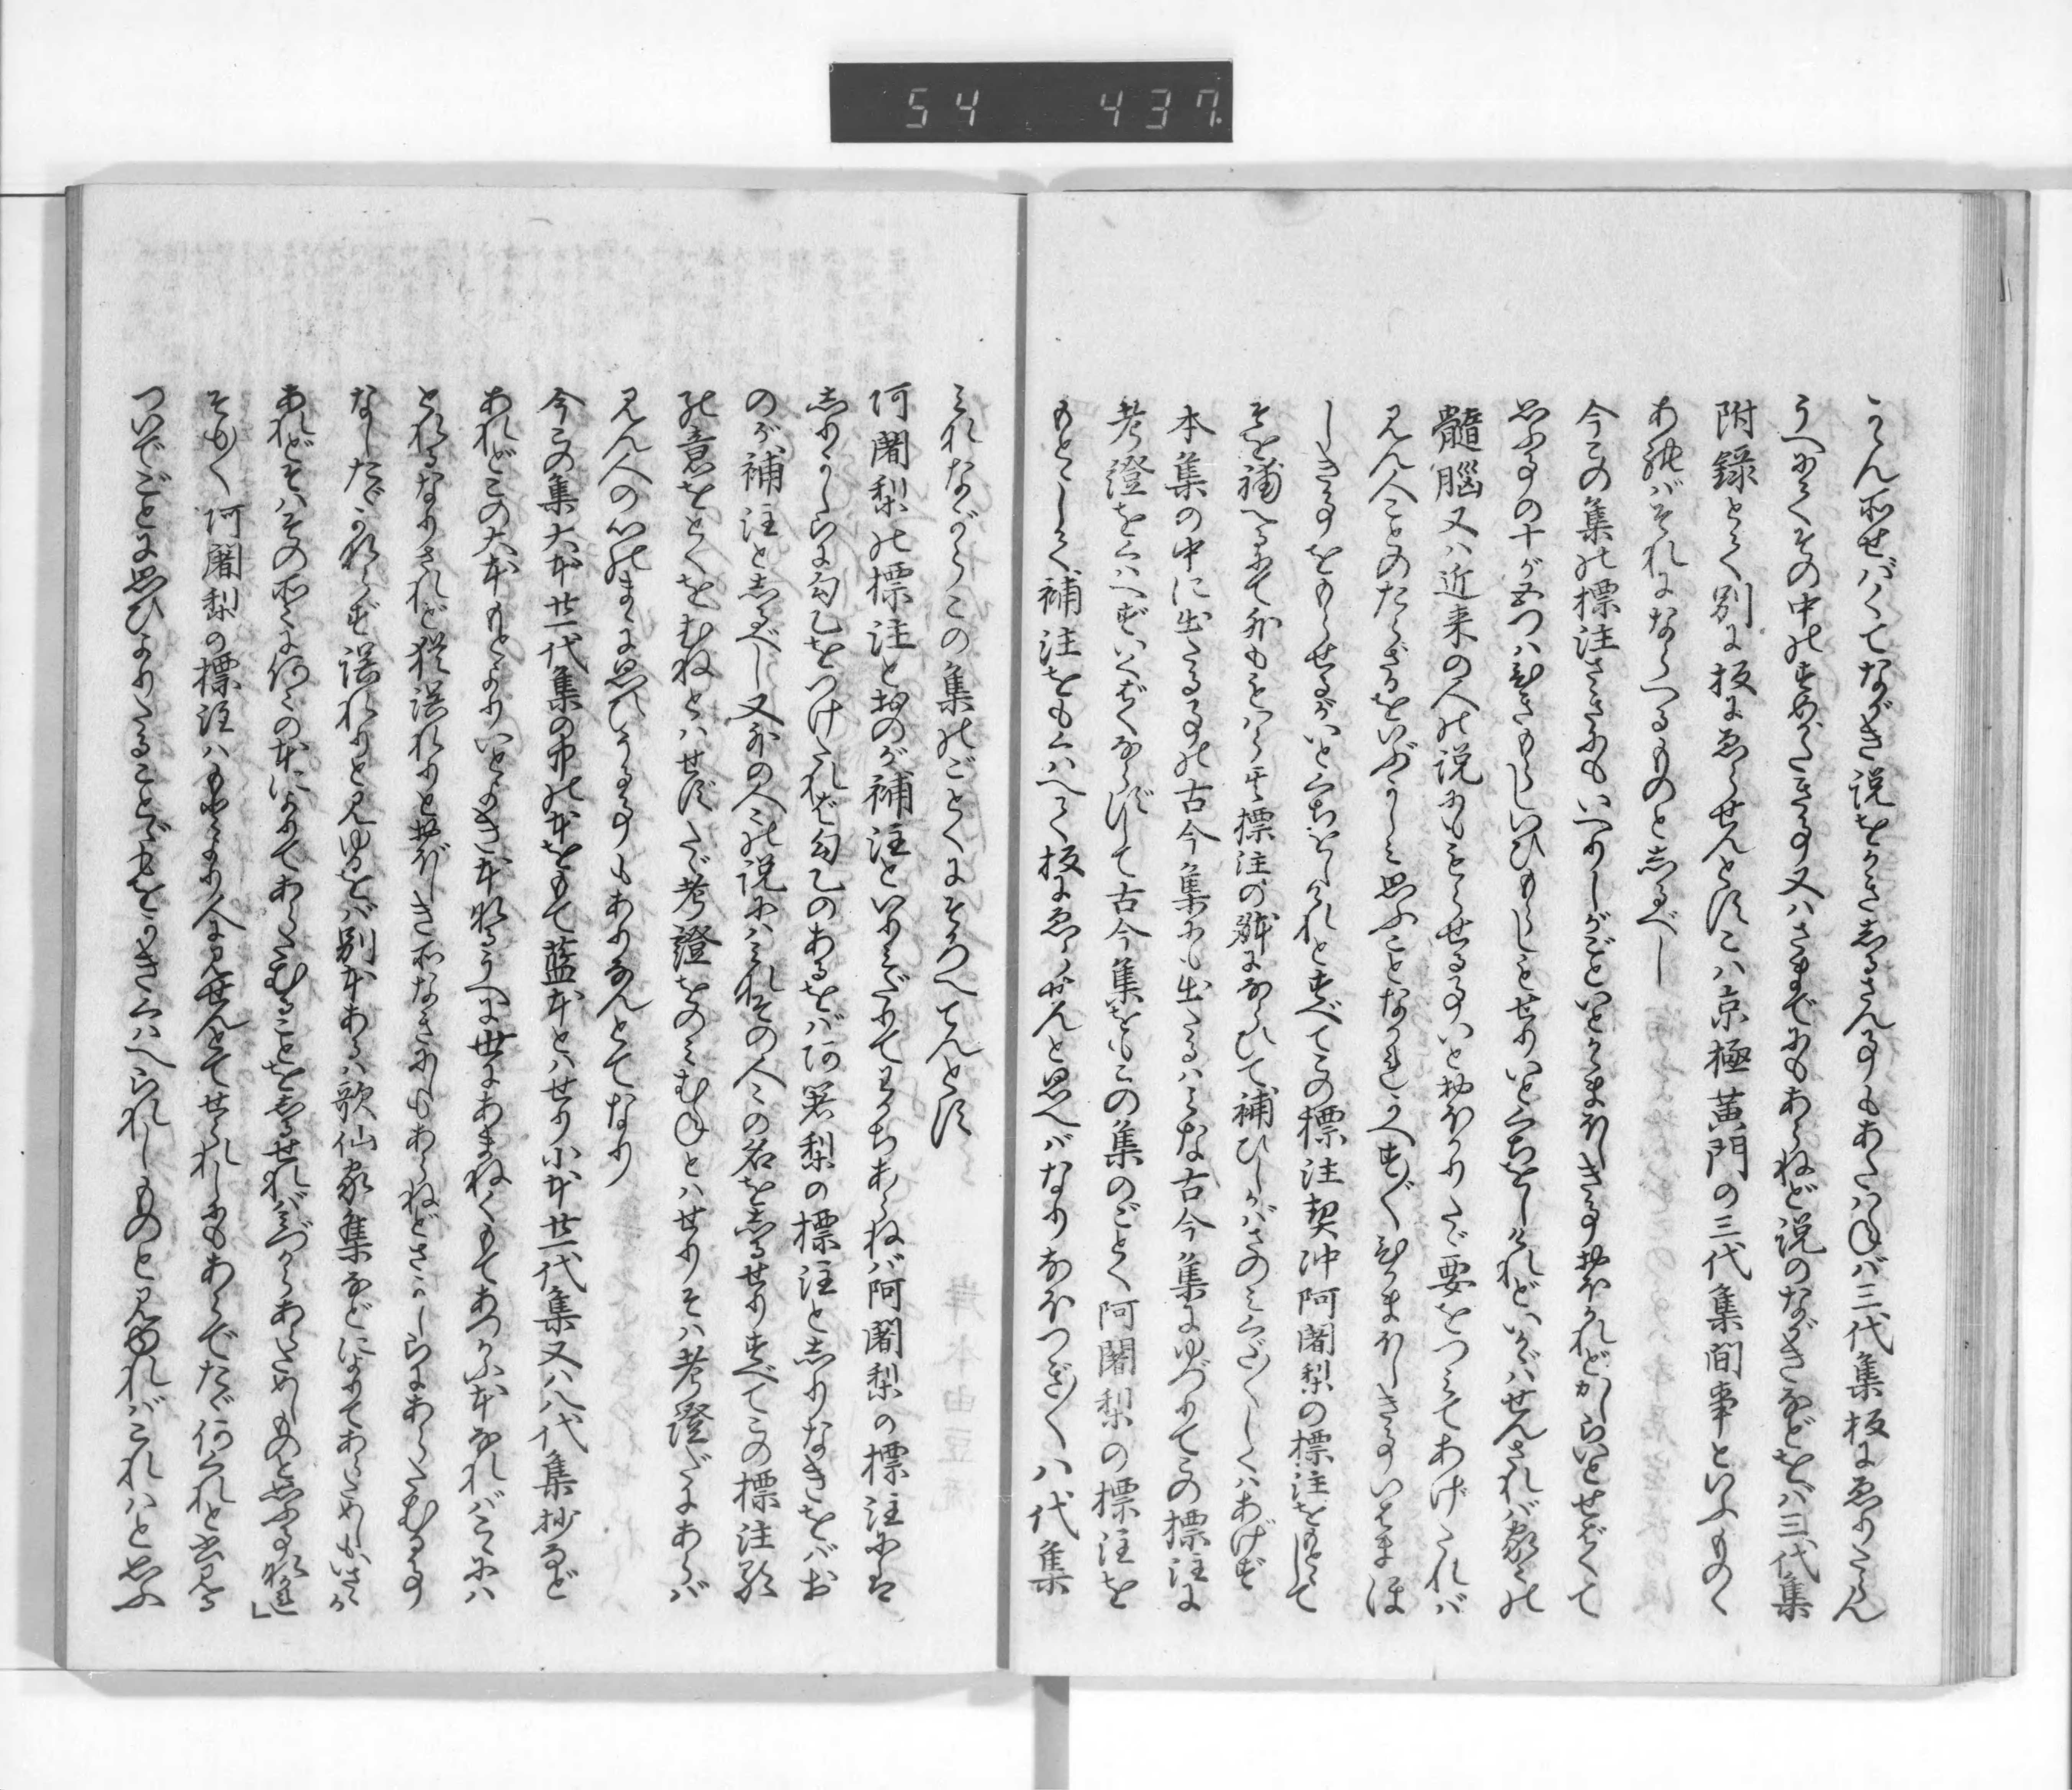 54 437
くてん所せばくてながき説をかきしるさん事もあたはねば三代集板にゑりたらん
うへにてその中のすぐれたき事又はさまでにもあらねど説のながきなどをば三代集
附録とて別に板にゑらせんとすこは京極黄門の三代集間事といふものゝ
あればそれにならへるものとしるべし
今この集の標注さきにもいへりしがごといとかまほしき事おほかれどかしらいとせばくて
思ふ事の十が五つはひきもらしいひもらしもせりいとくちをしけれどいかゞはせんされば家々の
髄脳又は近来の人の説にももらせる事いとおほかりたゞ要をつみてあげたれば
見ん人ことのたらざるをいぶかしみ思ふことなかれうへすべてひかまほしき事いはまほ
しき事をもらせるがいとくちをしけれどすべてこの標注契沖阿闍梨の標注をもとゝして
そを補へるにて外もみなかの標注の躰にならひて補ひしかばさのみくだ〳〵しくはあげず
本集の中に出たる事の古今集にも出たるはみな古今集にゆづりてこの標注に
考證をくはへずいくばくならずして古今集をもこの集のごとく阿闍梨の標注を
もとゝして補注をもくはへて板にゑらせんと思へばなりなほつぎ〳〵八代集
みなながらこの集のごとくにそろへてんとす
阿闍梨の標注とおのが補注といりみだりてわかちあらねば阿闍梨の標注には
しりかしらに勾乙をつけたれば勾乙のあるをば阿闍梨の標注としりなきをばお
のが補注としるべし又外の人の説にはみなその人々の名をしるせりすべてこの標注歌
の意をとくをむねとはせずたゞ考證をのみむねとはせりそは考證だにあらば
見ん人の心のまゝに思ひうる事もありなんとてなり
今この集大本廿一代集の中の本をもて藍本とはせり小本廿一代集又八代集抄など
あれどこの大本もとよりいとよき本なるうへに世にあまねくもてあつかふ本なればこゝには
とれるなりされど猶誤れりとおぼしき所なきにもあらねどさかしらにあらたむる事
なしたゞかならず誤れりと見ゆるをば別本あるは歌仙家集などによりてあらためしいさゝか
あれどそはその所々に何々の本によりてあらたむることをしるせればみづからあらためしものと思ふ事なかれ」
そも〳〵阿闍梨の標注はもとより人に見せんとてせられしにもあらでたゞ何くれと書見る
ついでごとに思ひよりたることどもをかきくはへられしものと見ゆればこれはと思ふ